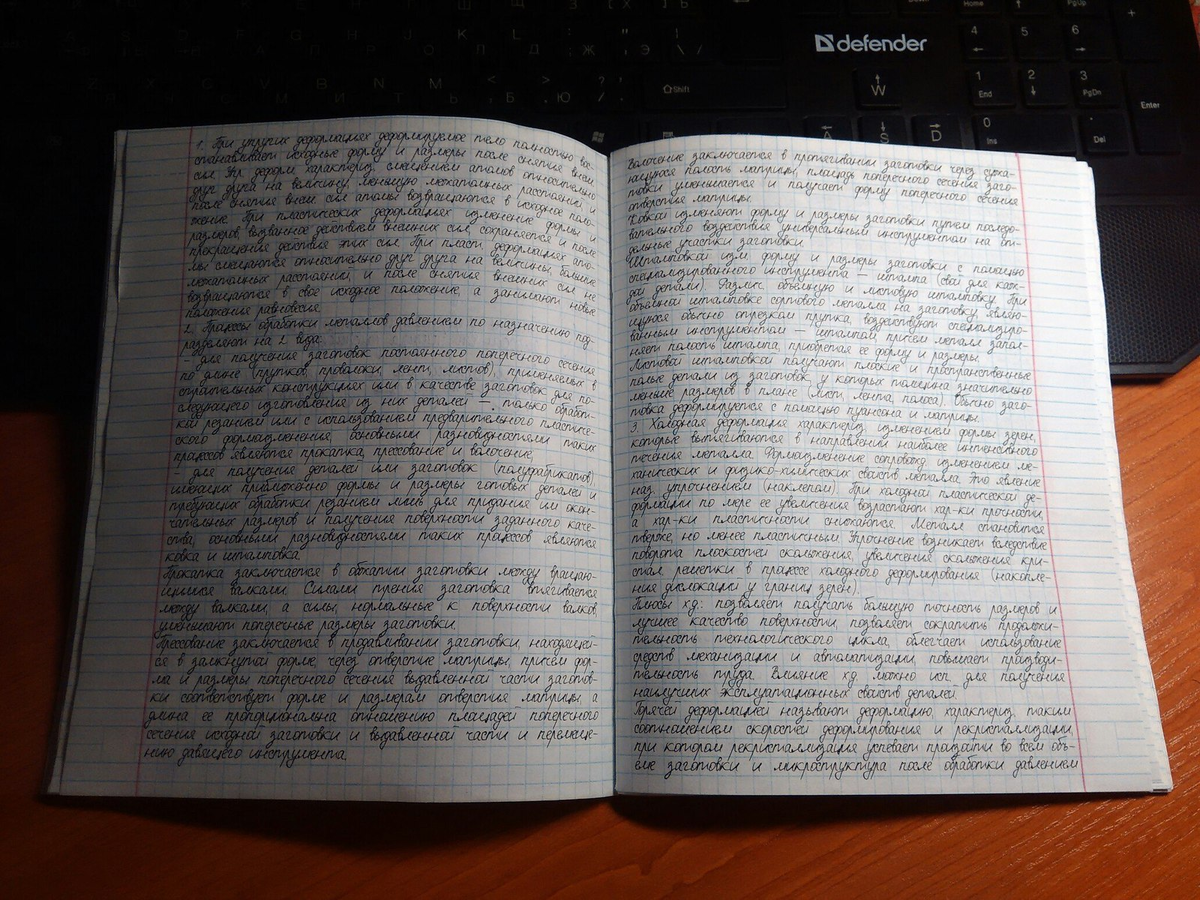 defender
Shift
W
A
S
D
4
5
6
1
End
2
3
PgDn
Enter
0
Ins
Del
Home
PgUp
1. При упругих деформациях деформируемое тело полностью вос-
станавливает исходные форму и размеры после снятия внеш.
сил. Упр. деформ. характериз. смещением атомов относительно
друг друга на величину, меньшую межатомных расстояний, и
после снятия внеш. сил атомы возвращаются в исходное поло-
жение. При пластических деформациях изменение формы и
размеров, вызванное действием внешних сил, сохраняется и после
прекращения действия этих сил. При пласт. деформациях ато-
мы смещаются относительно друг друга на величины, большие
межатомных расстояний, и после снятия внешних сил не
возвращаются в своё исходное положение, а занимают новые
положения равновесия.
2. Процессы обработки металлов давлением по назначению под-
разделяют на 2 вида:
- для получения заготовок постоянного поперечного сечения
по длине (прутков, проволоки, лент, листов), применяемых в
строительных конструкциях или в качестве заготовок для по-
следующего изготовления из них деталей — только обработ-
кой резанием или с использованием предварительного пластиче-
ского формоизменения, основными разновидностями таких
процессов являются прокатка, прессование и волочение;
- для получения деталей или заготовок (полуфабрикатов),
имеющих приближенно формы и размеры готовых деталей и
требующих обработки резанием лишь для придания им окон-
чательных размеров и получения поверхности заданного каче-
ства; основными разновидностями таких процессов являются
ковка и штамповка.
Прокатка заключается в обжатии заготовки между вращаю-
щимися валками. Силами трения заготовка втягивается
между валками, а силы, нормальные к поверхности валков,
уменьшают поперечные размеры заготовки.
Прессование заключается в продавливании заготовки, находящей-
ся в замкнутой форме, через отверстие матрицы, причём фор-
ма и размеры поперечного сечения выдавленной части заготов-
ки соответствует форме и размерам отверстия матрицы, а
длина её пропорциональна отношению площадей поперечного
сечения исходной заготовки и выдавленной части и перемеще-
нию давящего инструмента.
Волочение заключается в протягивании заготовки через сужа-
ющуюся полость матрицы, площадь поперечного сечения заго-
товки уменьшается и получает форму поперечного сечения
отверстия матрицы.
Ковкой изменяют форму и размеры заготовки путём последо-
вательного воздействия универсальным инструментом на от-
дельные участки заготовки.
Штамповкой изм. форму и размеры заготовки с помощью
специализированного инструмента — штампа (свой для каж-
дой детали). Различ. объёмную и листовую штамповку. При
объёмной штамповке сортового металла на заготовку, являю-
щуюся обычно отрезком прутка, воздействуют специализиро-
ванным инструментом — штампом, причём металл запол-
няет полость штампа, приобретая её форму и размеры.
Листовой штамповкой получают плоские и пространственные
полые детали из заготовок, у которых толщина значительно
меньше размеров в плане (лист, лента, полоса). Обычно заго-
товка деформируется с помощью пуансона и матрицы.
3. Холодная деформация характериз. изменением формы зерен,
которые вытягиваются в направлении наиболее интенсивного
течения металла. Формоизменение сопровожд. изменением ме-
ханических и физико-химических свойств металла. Это явление
наз. упрочнением (наклепом). При холодной пластической де-
формации по мере ее увеличения возрастают хар-ки прочности,
а хар-ки пластичности снижаются. Металл становится
тверже, но менее пластичным. Упрочнение возникает вследствие
поворота плоскостей скольжения, увеличения скольжения кри-
стал. решетки в процессе холодного деформирования (накопле-
ния дислокаций у границ зерен).
Плюсы хд: позволяет получать большую точность размеров и
лучшее качество поверхности, позволяет сократить продолжи-
тельность технологического цикла, облегчает использование
средств механизации и автоматизации, повышает производи-
тельность труда. Влияние хд можно исп. для получения
наилучших эксплуатационных свойств деталей.
Горячей деформацией называют деформацию, характериз. таким
соотношением скоростей деформирования и рекристаллизации,
при котором рекристаллизация успевает произойти во всём объ-
ёме заготовки и микроструктура после обработки давлением